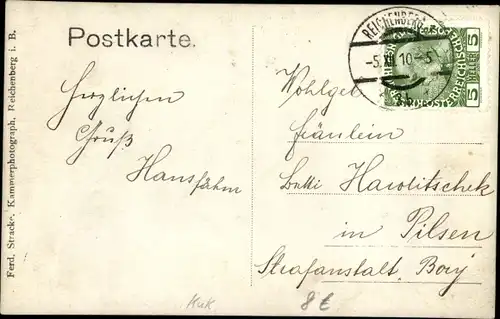 Postkarte.
Herzlichen
Gruß
Hans
REICHENBERG
-5. XII 10-5
5 HELLER 5
Wohlgeb
Fräulein
Hawlitschek
in Pilsen
Strafanstalt Bory
8 €
Ferd. Stracke, Kammerphotograph, Reichenberg i. B.